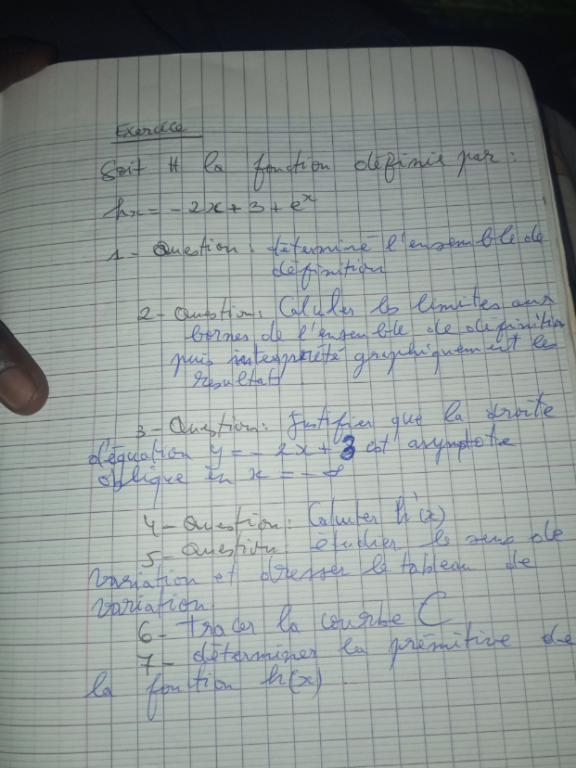 Exercice
Soit H la fonction définie par :
hx = -2x + 3 + e^x
1 - Question : déterminé l'ensemble de
définition
2 - Question : Calculer les limites aux
bornes de l'ensemble de définition
puis interprété graphiquement les
resultat
3 - Question : Justifier que la droite
d'équation y = -2x + 3 est asymptote
oblique en x = -∞
4 - Question : Calculer h'(x)
5 - Question : étudier le sens de
variation et dresser le tableau de
variation
6 - tracer la courbe C
7 - déterminer la prémitive de
la fonction h(x)